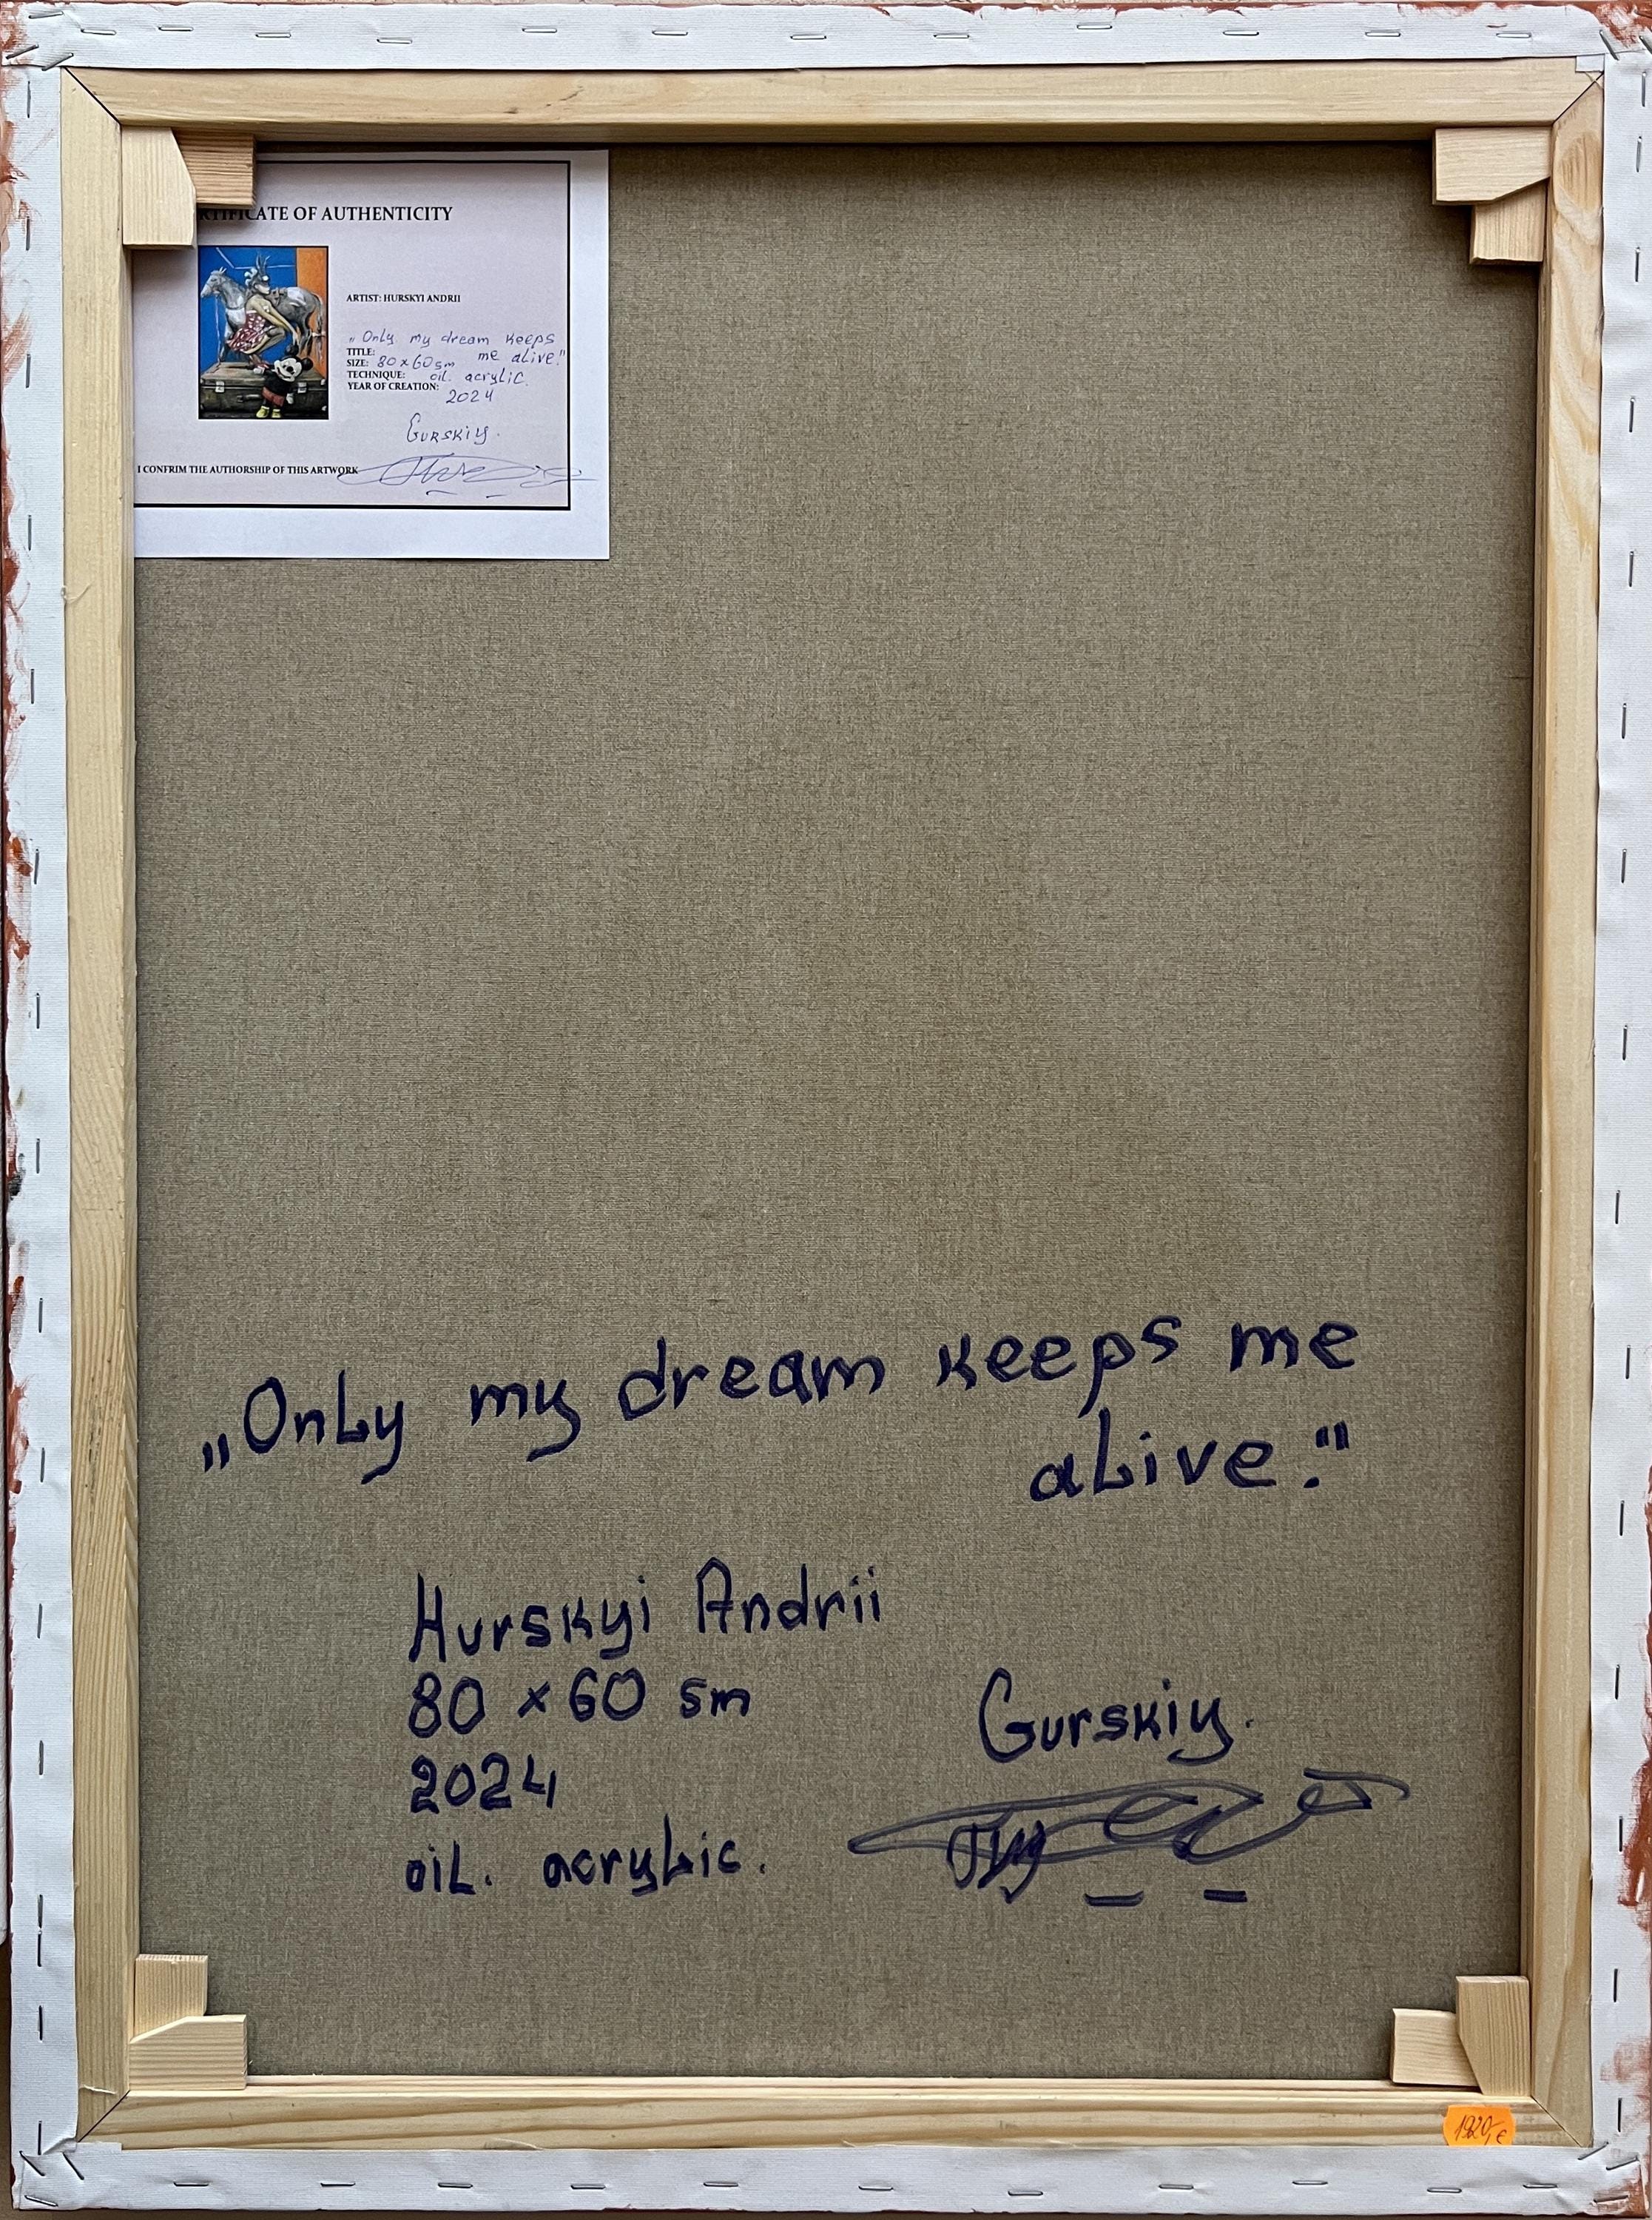 RTIFICATE OF AUTHENTICITY
ARTIST: HURSKYI ANDRII
„Only my dream keeps
me alive."
TITLE:
SIZE: 80 x 60 sm
TECHNIQUE: oil. acrylic.
YEAR OF CREATION:
2024
Gurskiy.
I CONFRIM THE AUTHORSHIP OF THIS ARTWORK
„Only my dream keeps me
alive."
Hurskyi Andrii
80 x 60 sm
2024
oil. acrylic.
Gurskiy.